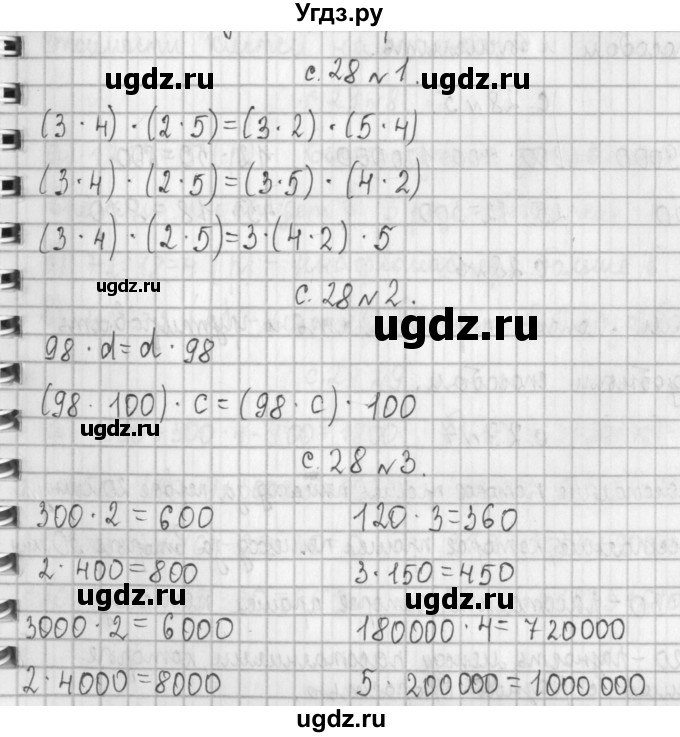 Угдз.ру
с. 28 № 1.
ugdz.ru ugdz.ru
(3 · 4) · (2 · 5) = (3 · 2) · (5 · 4)
(3 · 4) · (2 · 5) = (3 · 5) · (4 · 2)
(3 · 4) · (2 · 5) = 3 · (4 · 2) · 5
ugdz.ru
с. 28 № 2.
ugdz.ru
98 · d = d · 98
(98 · 100) · c = (98 · c) · 100
ugdz.ru
с. 28 № 3.
300 · 2 = 600 120 · 3 = 360
2 · 400 = 800 3 · 150 = 450
ugdz.ru ugdz.ru
3000 · 2 = 6000 180000 · 4 = 720000
2 · 4000 = 8000 5 · 200000 = 1000000
ugdz.ru